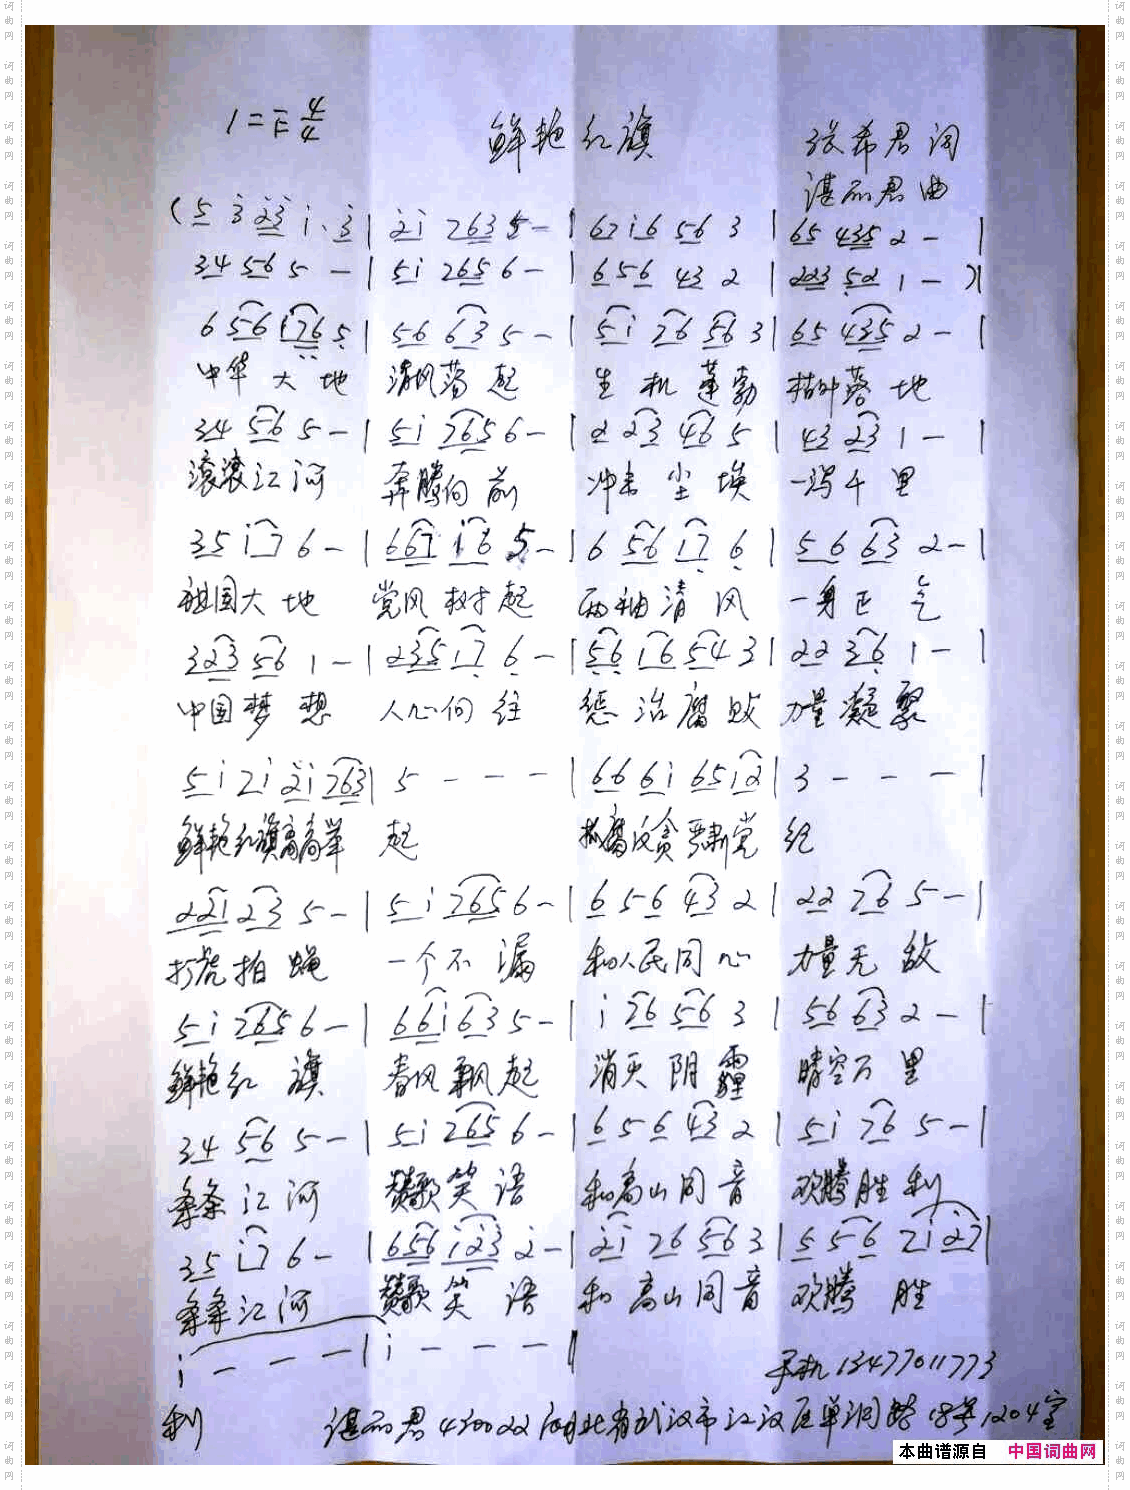 1=F 4/4
鲜艳红旗
张希君 词
谌丽君 曲
(5 3 23 1. 3 | 21 7635 - | 6716 56 3 | 65 435 2 - |
34 56 5 - | 51 7656 - | 656 43 2 | 223 52 1 - )|
6 56 1765 | 56 63 5 - | 51 76 56 3 | 65 435 2 - |
中华大地 清风荡起 生机蓬勃 落地
34 56 5 - | 51 7656 - | 2 23 46 5 | 43 23 1 - |
滚滚江河 奔腾向前 冲去尘埃 一泻千里
35 17 6 - | 667 16 5 - | 6 56 17 6 | 56 63 2 - |
祖国大地 党风树起 两袖清风 一身正气
323 56 1 - | 23517 6 - | 56 16 543 | 22 36 1 - |
中国梦想 人心向往 惩治腐败 力量凝聚
51 21 21 763 | 5 - - - | 66 61 6512 | 3 - - - |
鲜艳红旗高高举 起 抓腐反贪严肃党 纪
221 23 5 - | 51 7656 - | 656 43 2 | 22 76 5 - |
打虎拍蝇 一个不漏 和人民同心 力量无敌
51 7656 - | 661 63 5 - | 1 76 56 3 | 56 63 2 - |
鲜艳红旗 春风飘起 消灭阴霾 晴空万里
34 56 5 - | 51 765 6 - | 656 43 2 | 51 76 5 - |
条条江河 赞歌笑语 和高山同音 欢腾胜利
35 17 6 - | 656 123 2 - | 21 76 563 | 5 56 71 27 |
条条江河 赞歌笑语 和高山同音 欢腾 胜
1 - - - | 1 - - - ‖
手机13477011773
利 谌丽君 430022 湖北省武汉市江汉区单洞路18号1204室
本曲谱源自 中国词曲网